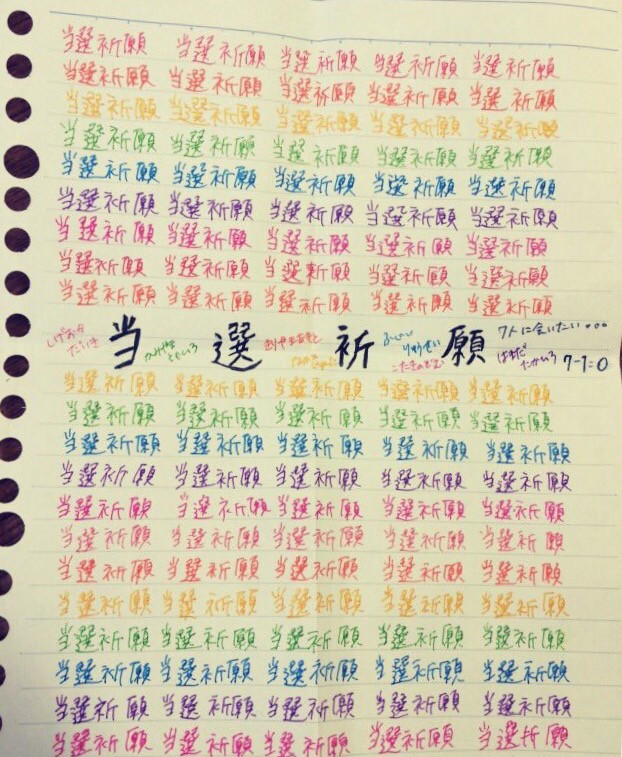 当選祈願 当選祈願 当選祈願 当選祈願 当選祈願
当選祈願 当選祈願 当選祈願 当選祈願 当選祈願
当選祈願 当選祈願 当選祈願 当選祈願 当選祈願
当選祈願 当選祈願 当選祈願 当選祈願 当選祈願
当選祈願 当選祈願 当選祈願 当選祈願 当選祈願
当選祈願 当選祈願 当選祈願 当選祈願 当選祈願
当選祈願 当選祈願 当選祈願 当選祈願 当選祈願
当選祈願 当選祈願 当選祈願 当選祈願 当選祈願
当選祈願 当選祈願 当選祈願 当選祈願 当選祈願
当 選 祈 願
しげおか
だいき
かみやま
ともひろ
きりやまあきと
ふじい
りゅうせい
こたきのぞむ
7人に会いたい...
はまだ
たかひろ 7-1=0
当選祈願 当選祈願 当選祈願 当選祈願 当選祈願
当選祈願 当選祈願 当選祈願 当選祈願 当選祈願
当選祈願 当選祈願 当選祈願 当選祈願 当選祈願
当選祈願 当選祈願 当選祈願 当選祈願 当選祈願
当選祈願 当選祈願 当選祈願 当選祈願 当選祈願
当選祈願 当選祈願 当選祈願 当選祈願 当選祈願
当選祈願 当選祈願 当選祈願 当選祈願 当選祈願
当選祈願 当選祈願 当選祈願 当選祈願 当選祈願
当選祈願 当選祈願 当選祈願 当選祈願 当選祈願
当選祈願 当選祈願 当選祈願 当選祈願 当選祈願
当選祈願 当選祈願 当選祈願 当選祈願 当選祈願
当選祈願 当選祈願 当選祈願 当選祈願 当選祈願